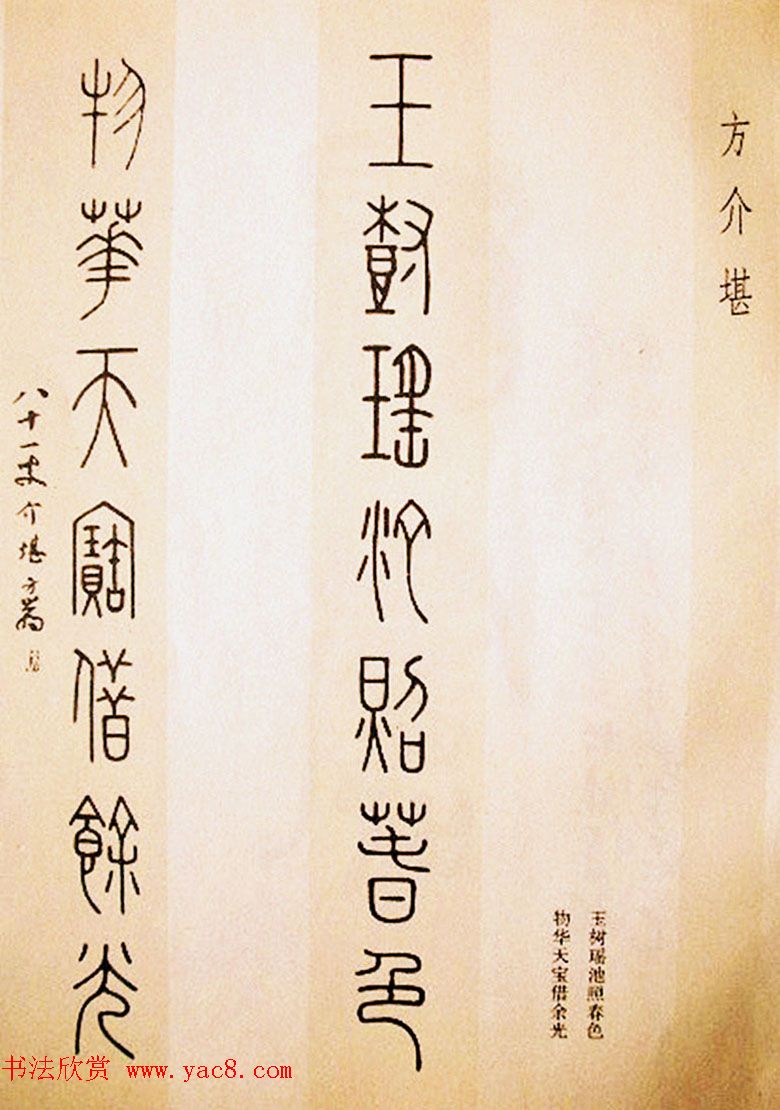 方介堪
玉樹瑤池照春色
物華天寶借餘光
八十一叟介堪方巖
玉树瑶池照春色
物华天宝借余光
书法欣赏 www.yac8.com